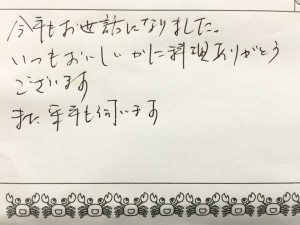 今年もお世話になりました。
いつもおいしいかに料理ありがとう
ございます
また 来年も伺います